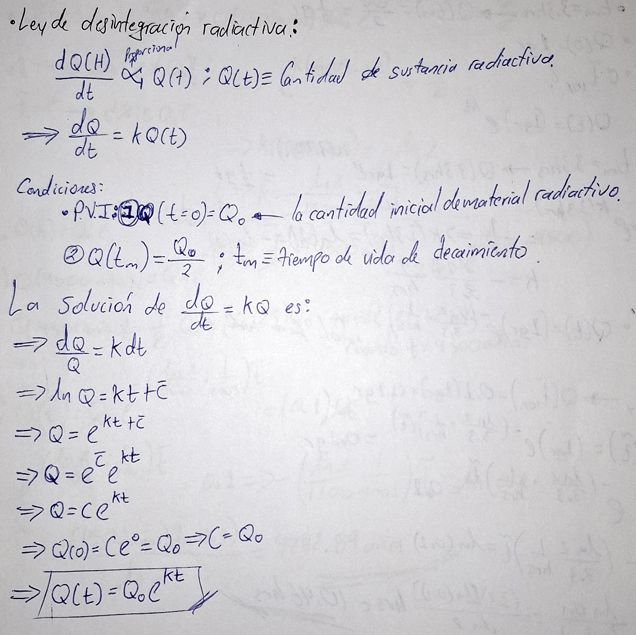 • Ley de desintegración radiactiva:
dQ(t)/dt ∝ Q(t) ; Q(t) ≡ Cantidad de sustancia radiactiva.
⟹ dQ/dt = kQ(t)
Condiciones:
• P.V.I: ① Q(t=0)=Q₀ ← la cantidad inicial de material radiactivo.
② Q(tₘ)=Q₀/2 ; tₘ ≡ tiempo de vida de decaimiento.
La solución de dQ/dt = kQ es:
⟹ dQ/Q = kdt
⟹ ln Q = kt + c̄
⟹ Q = e^(kt + c̄)
⟹ Q = e^c̄ e^kt
⟹ Q = Ce^kt
⟹ Q(0) = Ce⁰ = Q₀ ⟹ C = Q₀
⟹ Q(t) = Q₀e^kt